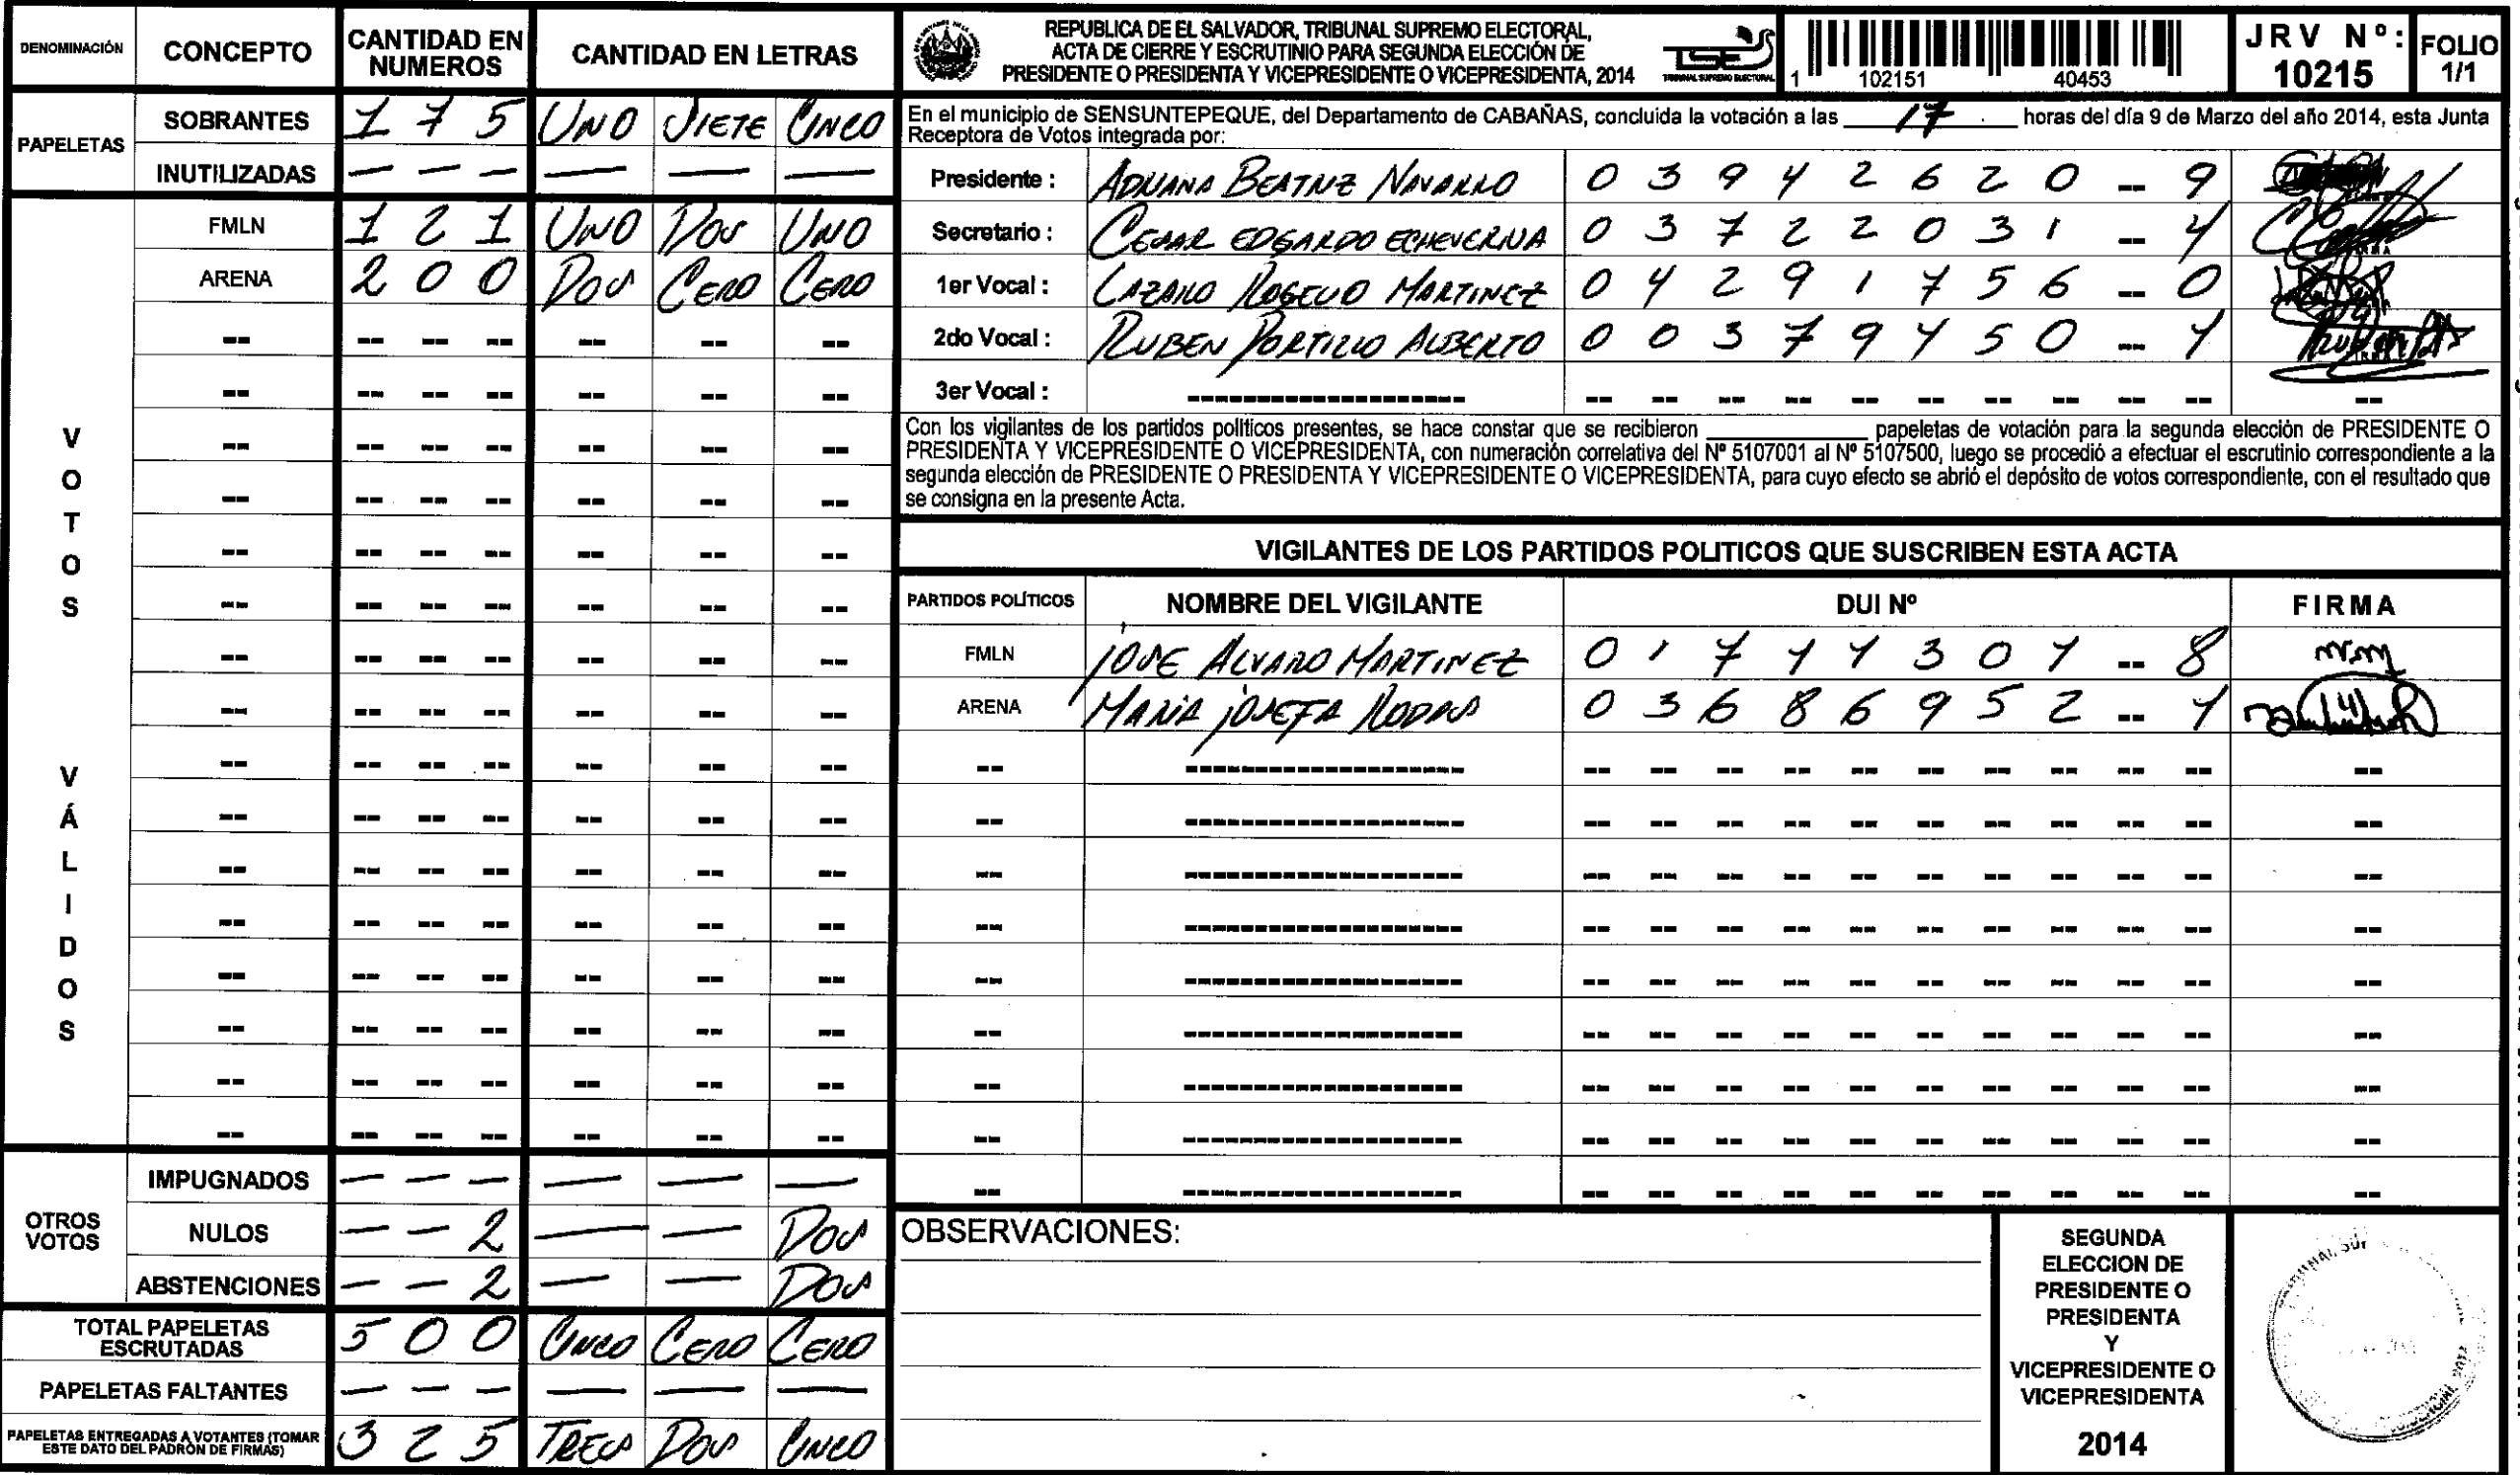 DENOMINACIÓN CONCEPTO CANTIDAD EN NUMEROS CANTIDAD EN LETRAS
PAPELETAS
SOBRANTES 1 7 5 UNO SIETE CINCO
INUTILIZADAS — — — — — —
VOTOS VÁLIDOS
FMLN 1 2 1 UNO DOS UNO
ARENA 2 0 0 DOS CERO CERO
OTROS VOTOS
IMPUGNADOS — — — — — —
NULOS — — 2 — — DOS
ABSTENCIONES — — 2 — — DOS
TOTAL PAPELETAS ESCRUTADAS 5 0 0 CINCO CERO CERO
PAPELETAS FALTANTES — — — — — —
PAPELETAS ENTREGADAS A VOTANTES (TOMAR ESTE DATO DEL PADRÓN DE FIRMAS) 3 2 5 TRES DOS CINCO
REPUBLICA DE EL SALVADOR, TRIBUNAL SUPREMO ELECTORAL,
ACTA DE CIERRE Y ESCRUTINIO PARA SEGUNDA ELECCIÓN DE
PRESIDENTE O PRESIDENTA Y VICEPRESIDENTE O VICEPRESIDENTA, 2014
TSE
TRIBUNAL SUPREMO ELECTORAL
1 102151 40453
JRV Nº: 10215
FOLIO 1/1
En el municipio de SENSUNTEPEQUE, del Departamento de CABAÑAS, concluida la votación a las 17 horas del día 9 de Marzo del año 2014, esta Junta
Receptora de Votos integrada por:
Presidente : ADRIANA BEATRIZ NAVARRO 0 3 9 4 2 6 2 0 -- 9
Secretario : CESAR EDGARDO ECHEVERRIA 0 3 7 2 2 0 3 1 -- 4
1er Vocal : LAZARO ROGELIO MARTINEZ 0 4 2 9 1 7 5 6 -- 0
2do Vocal : RUBEN PORTILLO ALBERTO 0 0 3 7 9 4 5 0 -- 4
3er Vocal :
Con los vigilantes de los partidos políticos presentes, se hace constar que se recibieron ________ papeletas de votación para la segunda elección de PRESIDENTE O
PRESIDENTA Y VICEPRESIDENTE O VICEPRESIDENTA, con numeración correlativa del Nº 5107001 al Nº 5107500, luego se procedió a efectuar el escrutinio correspondiente a la
segunda elección de PRESIDENTE O PRESIDENTA Y VICEPRESIDENTE O VICEPRESIDENTA, para cuyo efecto se abrió el depósito de votos correspondiente, con el resultado que
se consigna en la presente Acta.
VIGILANTES DE LOS PARTIDOS POLITICOS QUE SUSCRIBEN ESTA ACTA
PARTIDOS POLÍTICOS NOMBRE DEL VIGILANTE DUI Nº FIRMA
FMLN JOSE ALVARO MARTINEZ 0 1 7 4 4 3 0 4 -- 8
ARENA MARIA JOSEFA RODAS 0 3 6 8 6 9 5 2 -- 4
OBSERVACIONES:
SEGUNDA
ELECCION DE
PRESIDENTE O
PRESIDENTA
Y
VICEPRESIDENTE O
VICEPRESIDENTA
2014